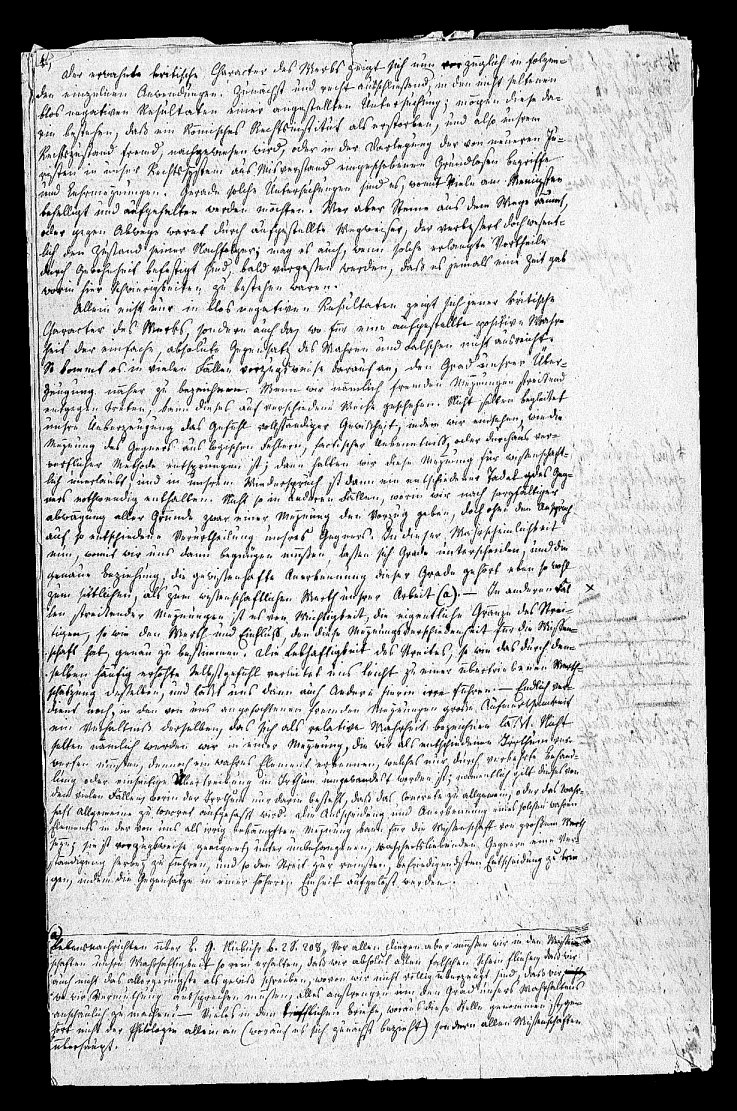 4.,
Der erwähnte kritische Character des Werks zeigt sich nun vorzüglich in folgen-
den einzelnen Anwendungen. Zunächst und recht ausschließend, in den nicht seltenen
blos negativen Resultaten einer angestellten Untersuchung; mögen diese da-
rin bestehen, daß ein Römisches Rechtsinstitut als erstorben, und also unsrem
Rechtszustand fremd, nachgewiesen wird, oder in der Darlegung der von neueren Ju-
risten in unser Rechtssystem aus Misverstand eingeschobenen grundlosen Begriffe
und Lehrmeynungen. Gerade solche Untersuchungen sind es, womit Viele am Wenigsten
behelligt und aufgehalten werden möchten. Wer aber Steine aus dem Wege räumt,
oder gegen Abwege warnt durch aufgestellte Wegweiser, der verbessert doch wesent-
lich den Zustand seiner Nachfolger; mag es auch, wenn solche erlangte Vortheile
durch Gewohnheit befestigt sind, bald vergessen werden, daß es jemals eine Zeit gab
worin hier Schwierigkeiten zu bestehen waren.
Allein nicht nur in blos negativen Resultaten zeigt sich jener kritische
Character des Werks, sondern auch da, wo für eine aufgestellte positive Wahr-
heit der einfache, absolute Gegensatz des Wahren und Falschen nicht ausreicht.
So kommt es in vielen Fällen vorzugsweise darauf an, den Grad unsrer Über-
zeugung näher zu bezeichnen. Wenn wir nämlich fremden Meynungen streitend
entgegen treten, kann dieses auf verschiedene Weise geschehen. Nicht selten begleitet
unsre Ueberzeugung das Gefühl vollständiger Gewißheit, indem wir einsehen, wie die
Meynung des Gegners aus logischen Fehlern, factischer Unkenntniß, oder durchaus ver-
werflicher Methode entsprungen ist; dann halten wir diese Meynung für wissenschaft-
lich unerlaubt, und in unsrem Widerspruch ist dann ein entschiedener Tadel des Geg-
ners nothwendig enthalten. Nicht so in anderen Fällen, worin wir nach sorgfältiger
Abwägung aller Gründe, zwar einer Meynung den Vorzug geben, doch ohne den Anspruch
auf so entschiedene Verurtheilung unsres Gegners. In dieser Wahrscheinlichkeit
nun, womit wir uns dann begnügen müssen, lassen sich Grade unterscheiden, und die
genaue Bezeichnung, die gewissenhafte Anerkennung dieser Grade gehört eben so wohl
zum sittlichen, als zum wissenschaftlichen Werth unsrer Arbeit (a). — In anderen Fäl- ×
len streitender Meynungen ist es von Wichtigkeit, die eigentliche Gränze des Strei-
tigen, so wie den Werth und Einfluß, den diese Meynungsverschiedenheit für die Wissen-
schaft hat, genau zu bestimmen. Die Lebhaftigkeit des Streites, so wie das durch den-
selben häufig erhöhte Selbstgefühl verleitet uns leicht zu einer übertriebenen Werth-
schätzung desselben, und läßt uns dann auch Andere hierin irre führen. — Endlich ver-
dient noch, in den von uns angefochtenen fremden Meynungen große Aufmerksamkeit
ein Verhältniß derselben, das sich als relative Wahrheit bezeichnen läßt. Nicht
selten nämlich werden wir in einer Meynung, die wir als entschiedenen Irrthum ver-
werfen müssen, dennoch ein wahres Element erkennen, welches nur durch verkehrte Behand-
lung oder einseitige Übertreibung in Irrthum umgewandelt worden ist; namentlich gilt dieses von
den vielen Fällen, worin der Irrthum nur darin besteht, daß das Concrete zu allgemein, oder das wahr-
haft Allgemeine zu concret aufgefaßt wird. Die Ausscheidung und Anerkennung eines solchen wahren
Elements in der von uns als irrig bekämpften Meynung kann für die Wissenschaft von großem Werth
seyn; sie ist vorzugsweise geeignet, unter unbefangenen, wahrheitsliebenden Gegnern eine Ver-
ständigung herbey zu führen, und so den Streit zur reinsten, befriedigendsten Entscheidung zu brin-
gen, indem die Gegensätze in einer höheren Einheit aufgelöst werden.
(a) Lebensnachrichten über B. G. Niebuhr B. 2 S. 208. „Vor allen Dingen aber müssen wir in den Wissen-
schaften unsre Wahrhaftigkeit so rein erhalten, daß wir absolut allen falschen Schein fliehen, daß wir
auch nicht das allergeringste als gewiß schreiben, wovon wir nicht völlig überzeugt sind, daß wir
wo wir Vermuthung aussprechen müssen, alles anstrengen um den Grad unsers Wahrhaltens
anschaulich zu machen. — Vieles in dem trefflichen Briefe, woraus diese Stelle genommen ist, ge-
hört nicht der Philologie allein an (worauf es sich zunächst bezieht) sondern allen Wissenschaften
überhaupt.